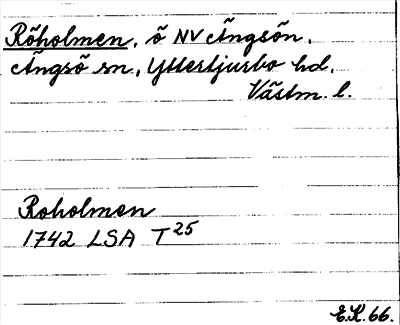 Röholmen, ö NV Ängsön,
Ängsö sn, Yttertjurbo hd,
Västm. l.
Roholmen
1742 LSA T25
E.K. 66.